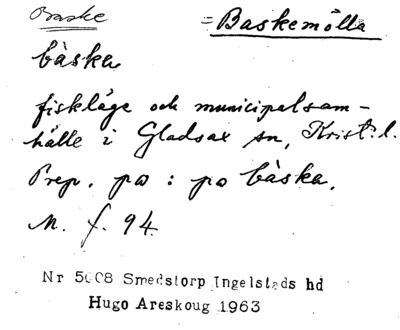 Baske = Baskemölla
bàska
fiskläge och municipalsam-
hälle i Gladsax sn, Krist. l.
Prep. på : po bàska.
M. f. 94
Nr 5608 Smedstorp Ingelstads hd
Hugo Areskoug 1963